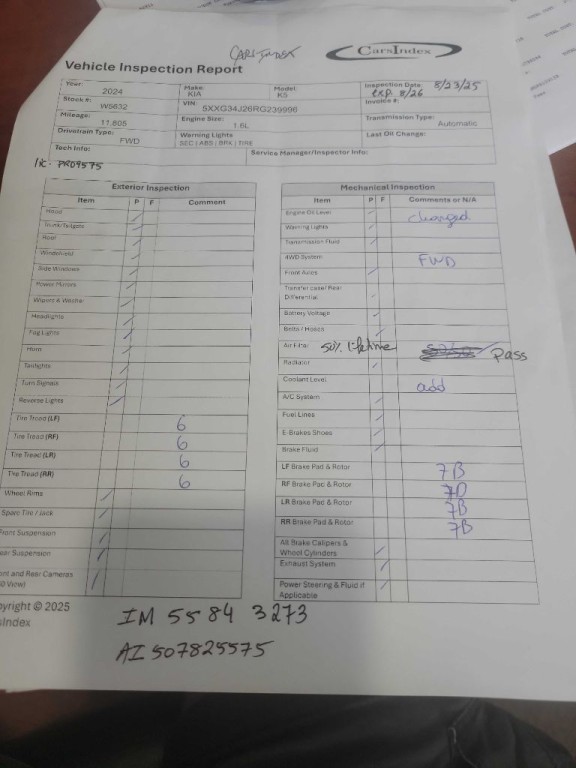 CARS INDEX
CarsIndex
Vehicle Inspection Report
Year: 2024 Make: KIA Model: K5 Inspection Date: 8/23/25
exp. 8/26
Stock #: W5632 VIN: 5XXG34J26RG239996 Invoice #:
Mileage: 11,605 Engine Size: 1.6L Transmission Type: Automatic
Drivetrain Type: FWD Warning Lights SEC | ABS | BRK | TIRE Last Oil Change:
Tech Info: Service Manager/Inspector Info:
lic. PRO4575
Exterior Inspection
Item P F Comment
Hood
Trunk/Tailgate
Roof
Windshield
Side Windows
Power Mirrors
Wipers & Washer
Headlights
Fog Lights
Horn
Taillights
Turn Signals
Reverse Lights
Tire Tread (LF) 6
Tire Tread (RF) 6
Tire Tread (LR) 6
Tire Tread (RR) 6
Wheel Rims
Spare Tire / Jack
Front Suspension
ear Suspension
ont and Rear Cameras
0 View)
Mechanical Inspection
Item P F Comments or N/A
Engine Oil Level changed
Warning Lights
Transmission Fluid
4WD System FWD
Front Axles
Transfer case/ Rear
Differential
Battery Voltage
Belts / Hoses
Air Filter 50% lifetime Pass
Radiator
Coolant Level add
A/C System
Fuel Lines
E-Brakes Shoes
Brake Fluid
LF Brake Pad & Rotor 7B
RF Brake Pad & Rotor 7D
LR Brake Pad & Rotor 7B
RR Brake Pad & Rotor 7B
All Brake Calipers &
Wheel Cylinders
Exhaust System
Power Steering & Fluid if
Applicable
pyright © 2025
sIndex
IM 5584 3273
AI 507825575